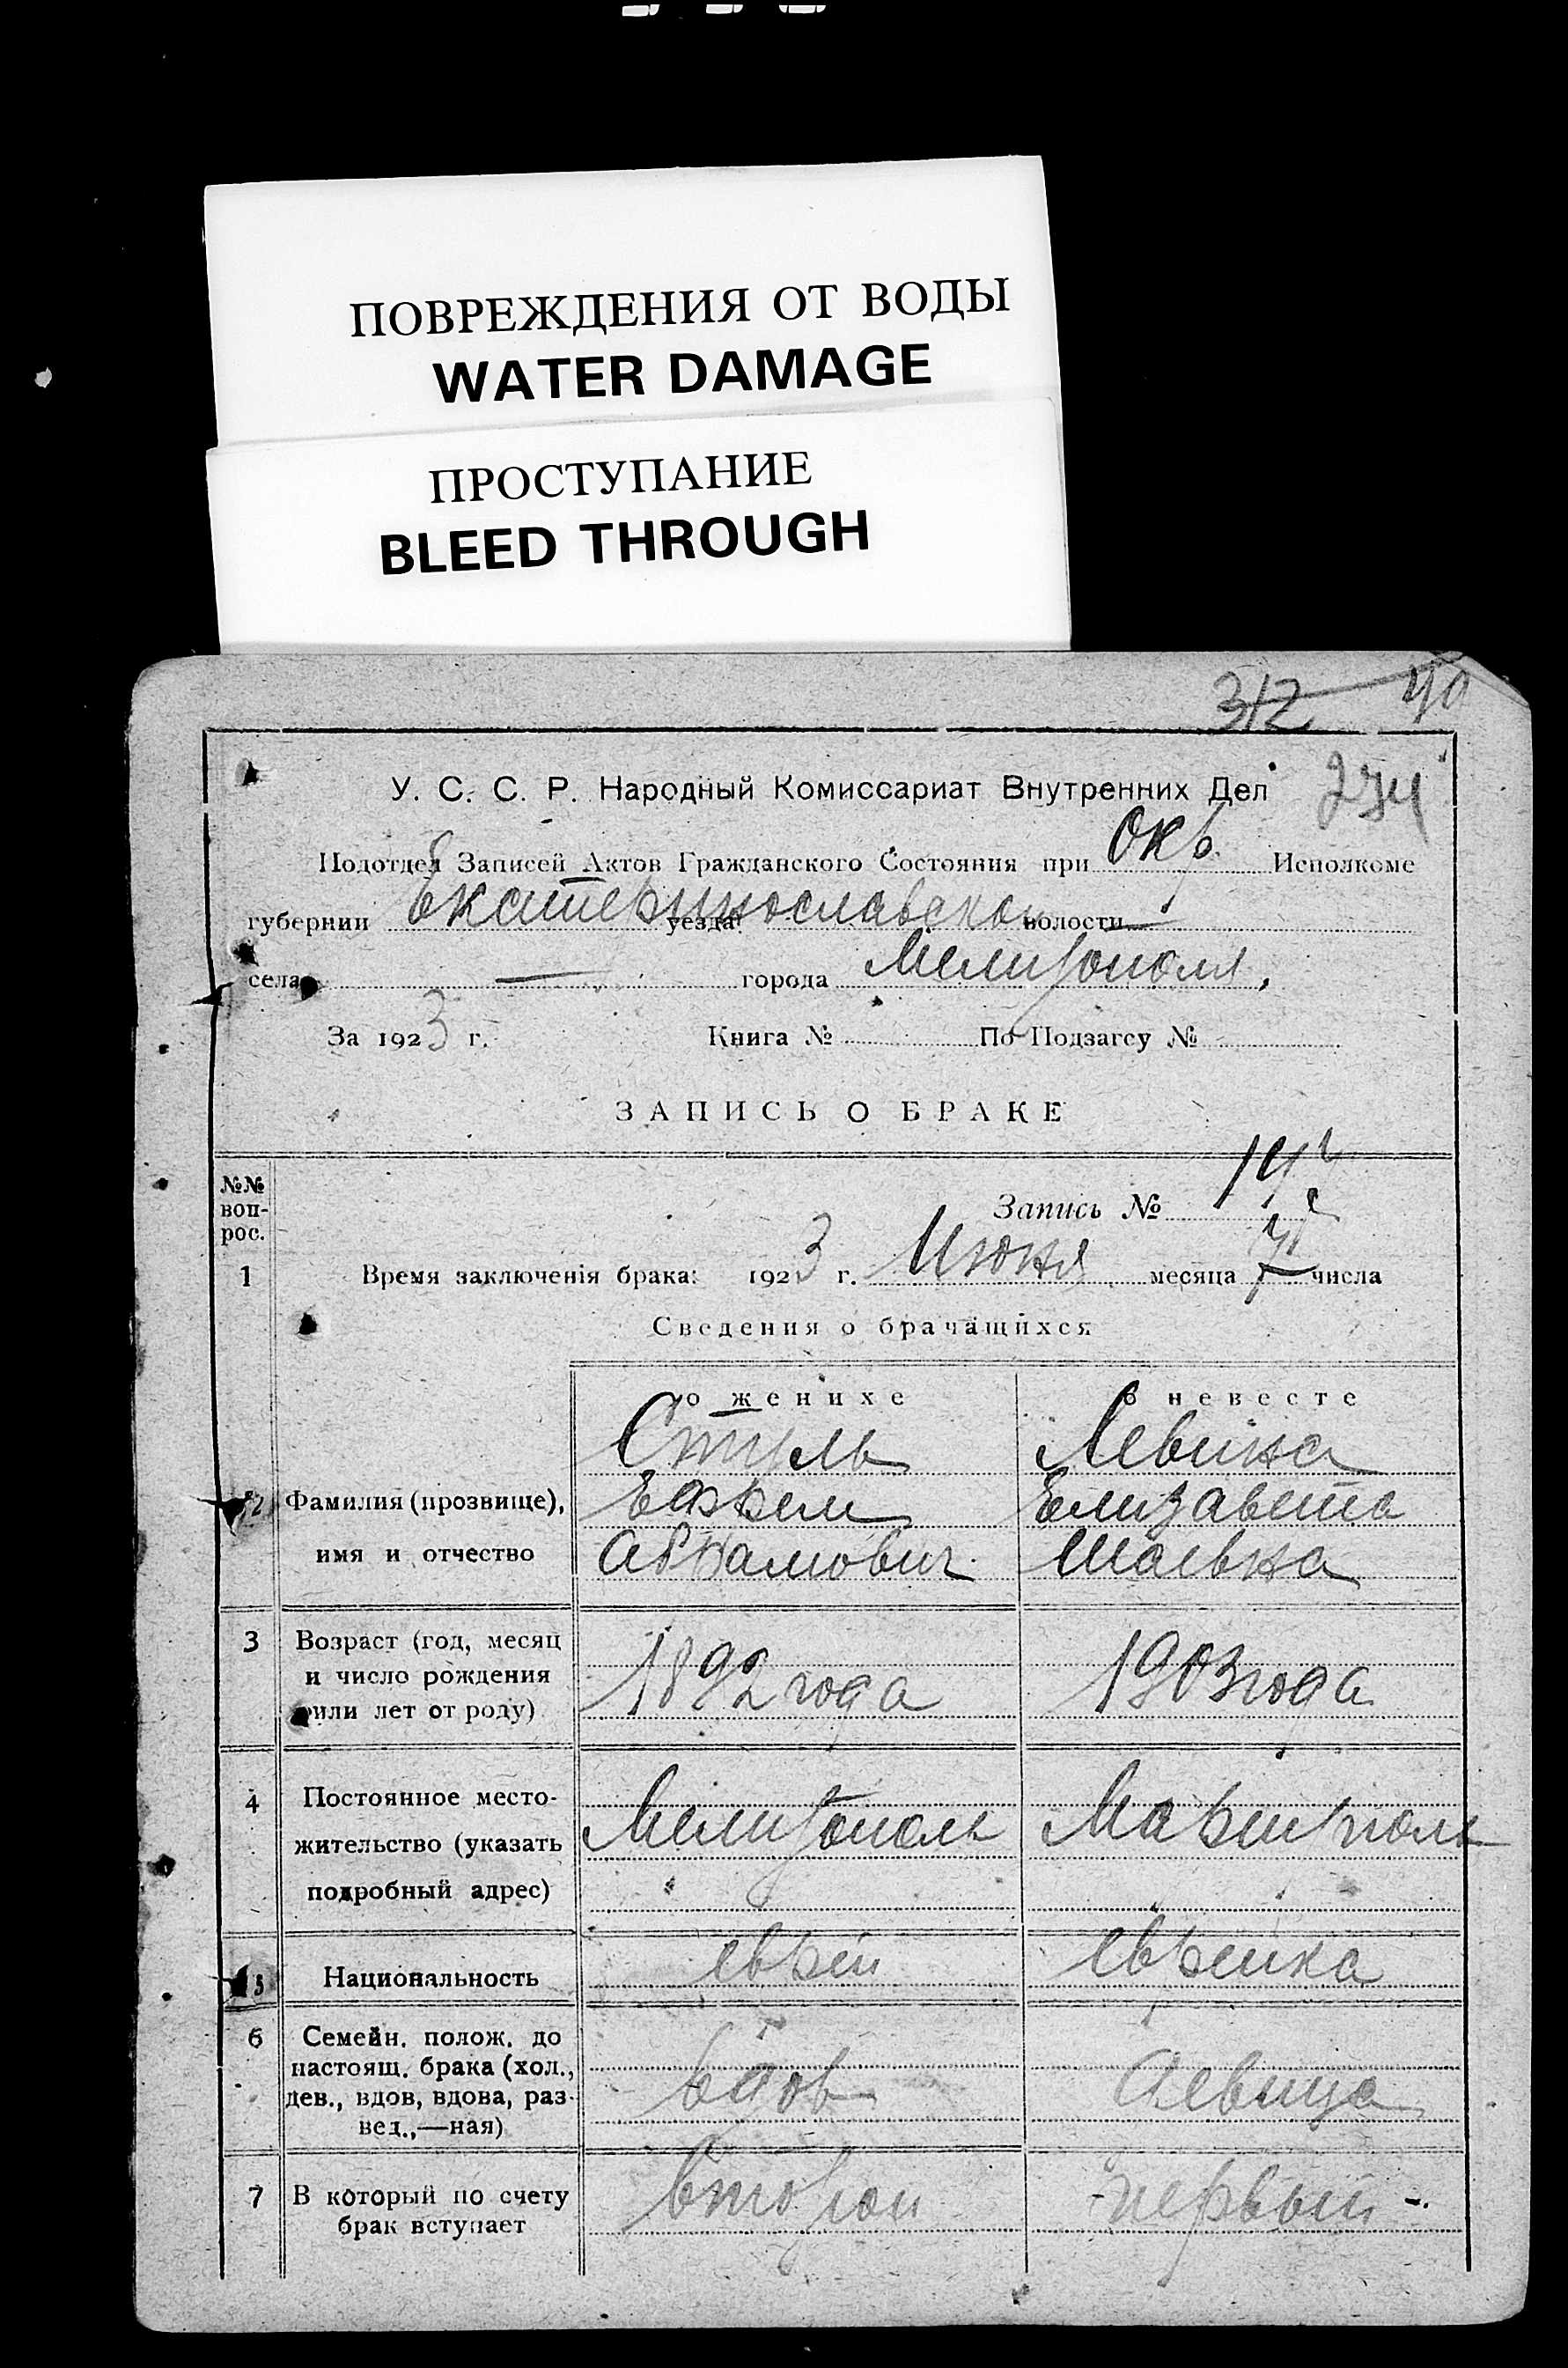 ПОВРЕЖДЕНИЯ ОТ ВОДЫ
WATER DAMAGE
ПРОСТУПАНИЕ
BLEED THROUGH
312 40
274
У. С. С. Р. Народный Комиссариат Внутренних Дел
Подотдел Записей Актов Гражданского Состояния при Окр. Исполкоме
губернии Екатеринославской уезда волости —
села — города Мелитополя.
За 1923 г. Книга № По Подзагсу №
ЗАПИСЬ О БРАКЕ
№№ воп-
рос.
Запись №
1 Время заключенiя брака: 1923 г. Июня месяца числа
Сведения о брачащихся
о женихе о невесте
Стуль Левина
2 Фамилия (прозвище), Ефрем Елизавета
имя и отчество Абрамович Шаевна
3 Возраст (год, месяц
и число рождения 1892 года 1903 года
или лет от роду)
4 Постоянное место-
жительство (указать Мелитополь Мариуполь
подробный адрес)
5 Национальность еврей еврейка
6 Семейн. полож. до
настоящ. брака (хол.,
дев., вдов, вдова, раз- вдов девица
вед.,—ная)
7 В который по счету второй - первый -.
брак вступает